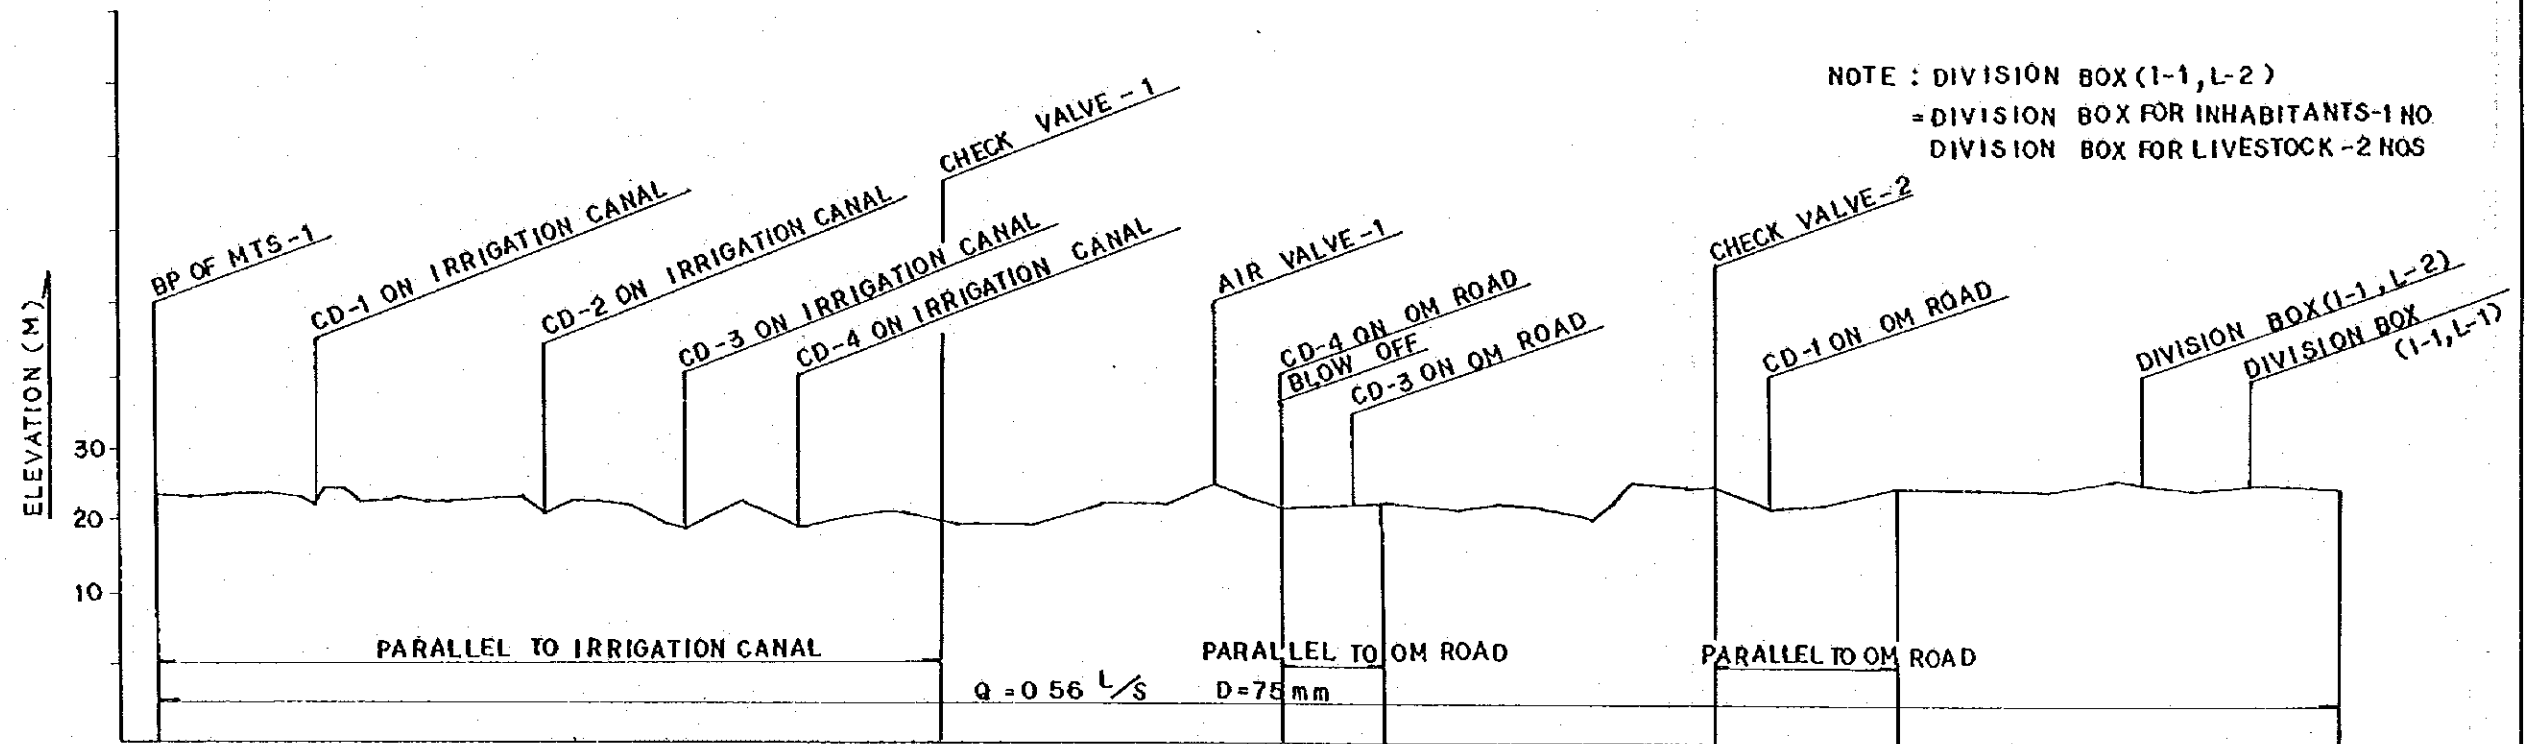 NOTE : DIVISION BOX (1-1, L-2)
= DIVISION BOX FOR INHABITANTS-1 NO
DIVISION BOX FOR LIVESTOCK -2 NOS
BP OF MTS-1
CD-1 ON IRRIGATION CANAL
CD-2 ON IRRIGATION CANAL
CHECK VALVE -1
CD-3 ON IRRIGATION CANAL
CD-4 ON IRRIGATION CANAL
AIR VALVE-1
CD-4 ON OM ROAD
BLOW OFF
CD-3 ON OM ROAD
CHECK VALVE-2
CD-1 ON OM ROAD
DIVISION BOX(1-1, L-2)
DIVISION BOX
(1-1, L-1)
ELEVATION (M)
30
20
10
PARALLEL TO IRRIGATION CANAL
PARALLEL TO OM ROAD
PARALLEL TO OM ROAD
Q = 0 56 L/S D=75 mm